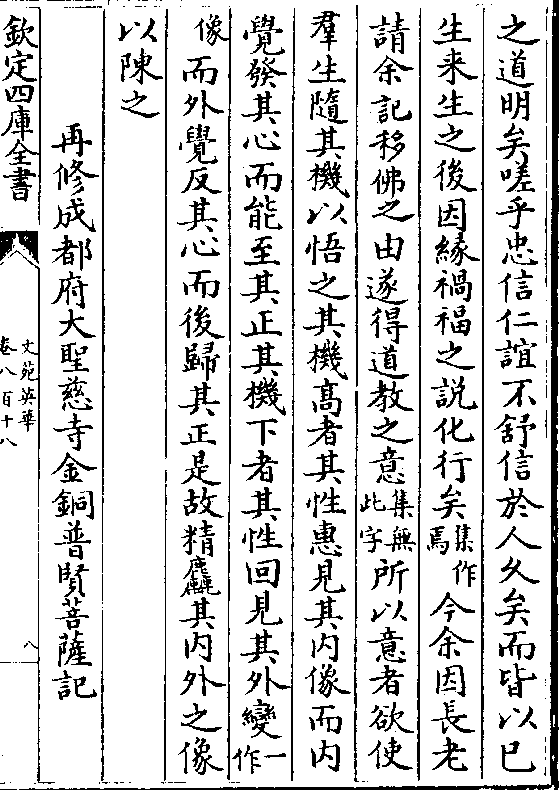 之道明矣嗟乎忠信仁誼不舒信於人久矣而皆以已
生来生之後因緣禍福之説化行矣集作焉今余因長老
請余記移佛之由遂得道教之意集無此字所以意者欲使
羣生隨其機以悟之其機髙者其性惠見其内像而内
覺發其心而能至其正其機下者其性回見其外變一作
像而外覺反其心而後歸其正是故精麤其内外之像
以陳之
再修成都府大聖慈寺金銅普賢菩薩記
欽定四庫全書
文苑英華
卷八百十八
八